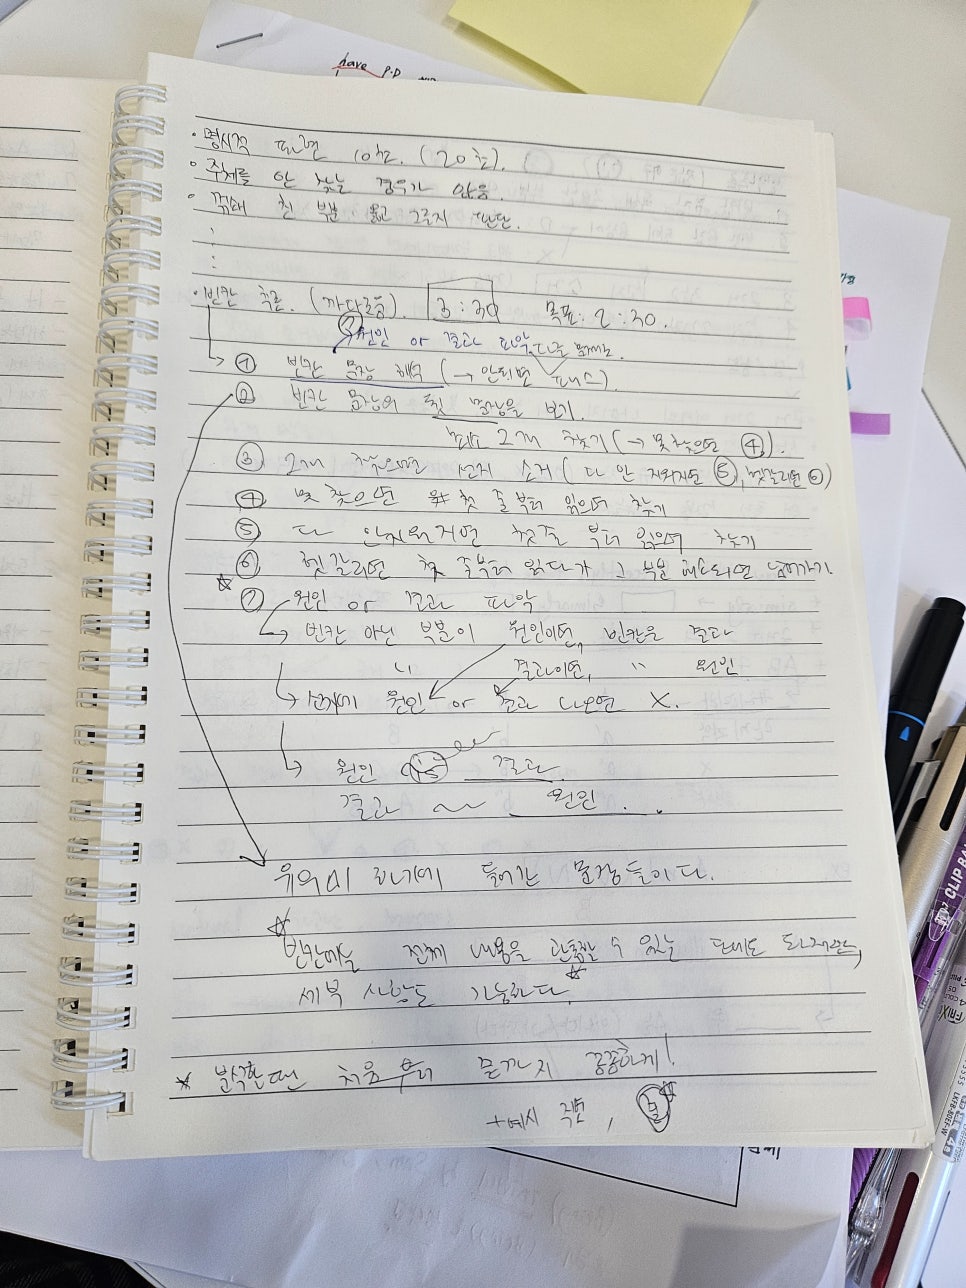 have P.P
· 명시적 따르면 10초. (20초).
· 주제를 안 찾는 경우가 많음.
· 꺾쇄 친 부분 읽고 그른지 판단.
:
:
· 빈칸 추론. (까다로움). 3:30 목표: 2:30.
⑦ 원인 or 결과 파악.
① 빈칸 문장 해석 (→ 안되면 패스).
② 빈칸 문장의 뒷 문장을 보기.
2개 찾기 (→ 못 찾으면 ④).
③ 2개 찾으면 선지 소거 (다 안 지워지면 ⑤, 헷갈리면 ⑥)
④ 못 찾으면 첫 줄부터 읽으며 찾기
⑤ 다 안지워지면 첫줄 부터 읽으며 찾기
⑥ 헷갈리면 첫 줄부터 읽다가 그 부분 해소되면 넘어가기.
☆
⑦ 원인 or 결과 파악
→ 빈칸 아닌 부분이 원인이면, 빈칸은 결과
" 결과이면, " 원인.
→ 선지에 원인 or 결과 나오면 X.
→ 원인 is 결과
결과 ~ 원인.
유의미 하나에 들어간 문장들이다.
☆
빈칸에는 전체 내용을 관통할 수 있는 단어도 되지만,
세부 사항도 가능하다.
☆
★ 분석할 땐 처음 부터 끝까지 꼼꼼하게!
+ 예시
CLIP
FRIX
LKFB-80EF-W